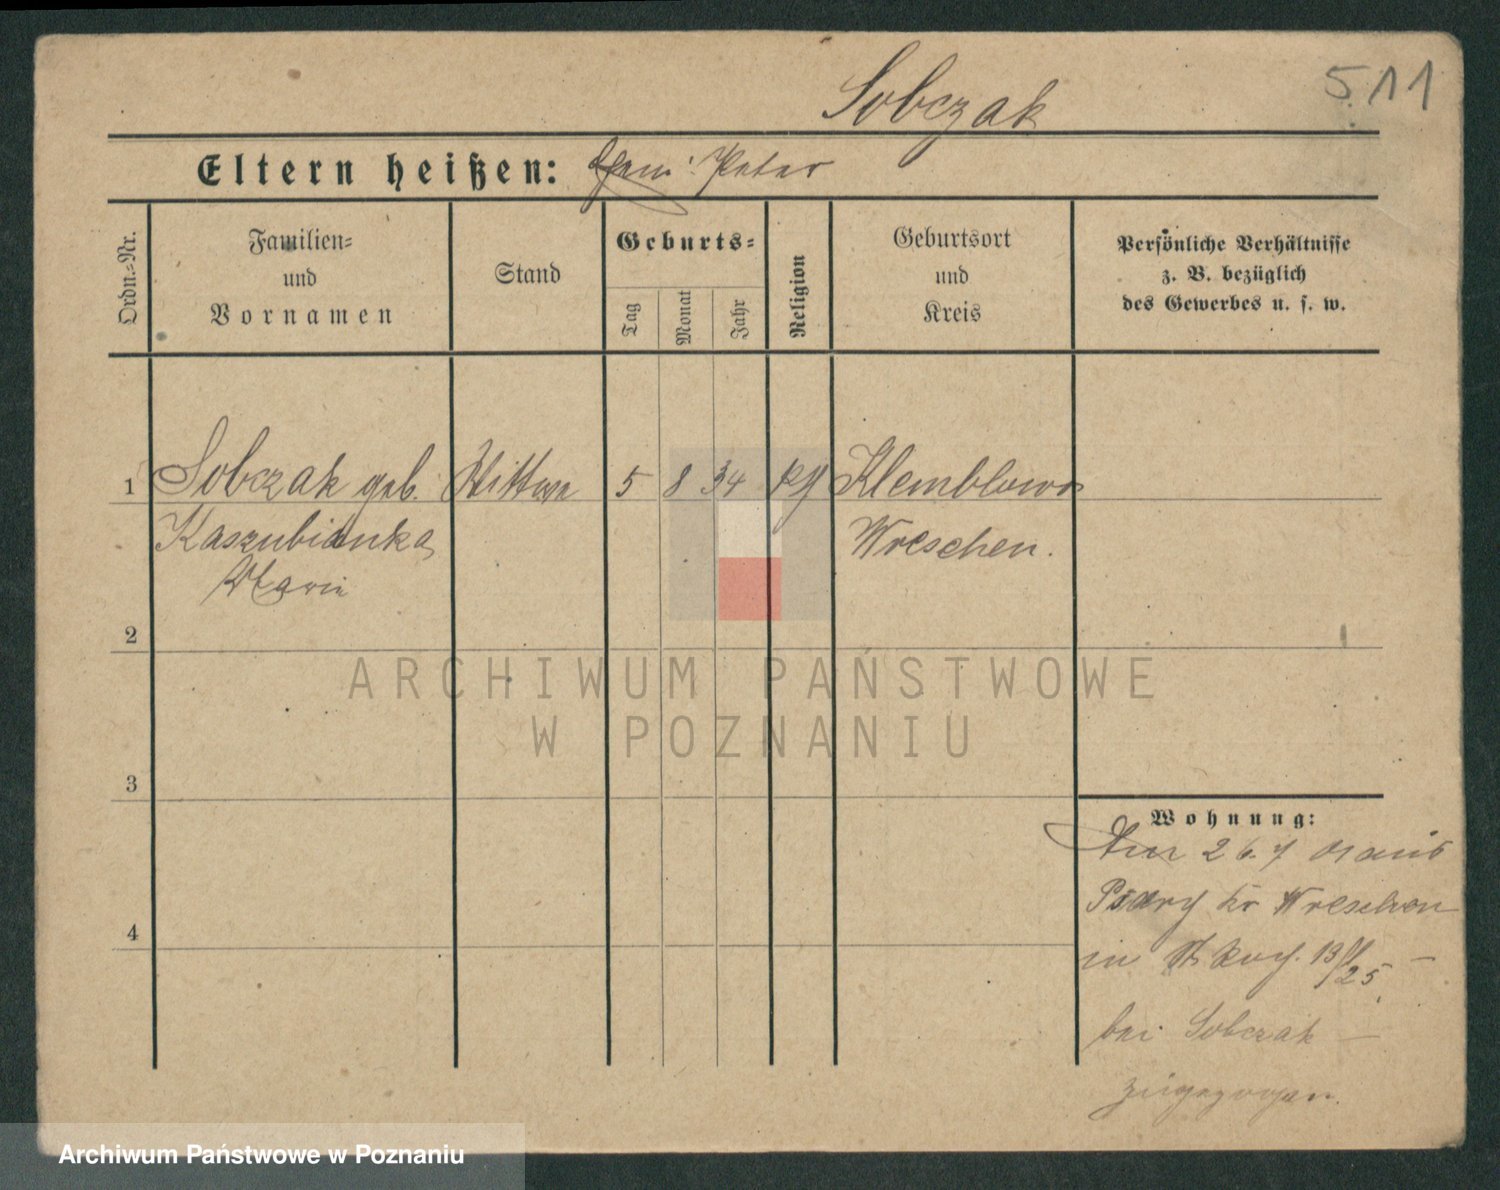 Sobczak
5.11
Eltern heißen: Peter
Ordn.=Nr.
Familien=
und
Vornamen
Stand
Geburts=
Tag
Monat
Jahr
Religion
Geburtsort
und
Kreis
Persönliche Verhältnisse
z. B. bezüglich
des Gewerbes u. s. w.
1 Sobczak geb. Wittwe 5 8 34 Klemblowo
Kaszubianka Wreschen.
Marie
2
ARCHIWUM PAŃSTWOWE
W POZNANIU
3
Wohnung:
Am 26.7
Psary Kr Wreschen
4
in 13/25.
bei Sobczak —
zugezogen.
Archiwum Państwowe w Poznaniu